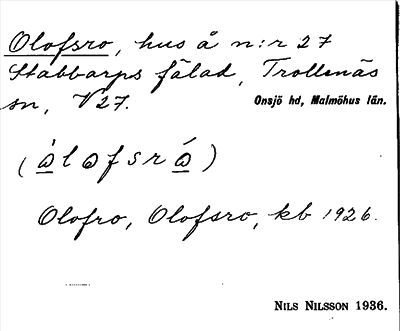 Olofsro, hus å n:r 27
Stabbarps fälad, Trollenäs
sn, V27. Onsjö hd, Malmöhus län.
(ὰlɷfsrɷ́)
Olofro, Olofsro, kb 1926.
NILS NILSSON 1936.